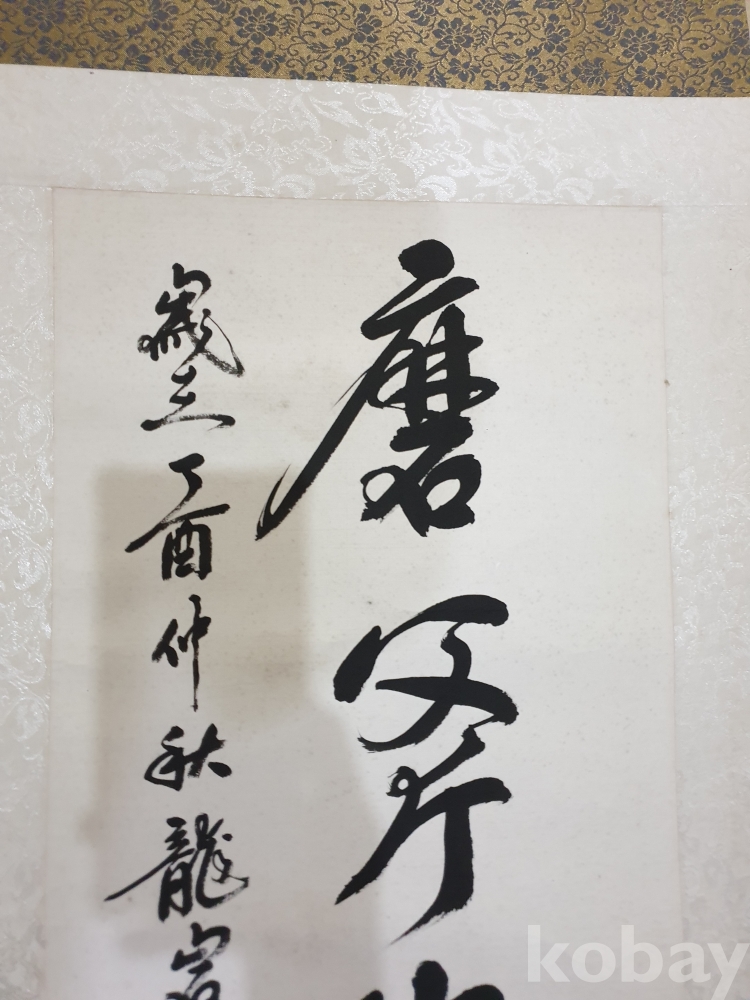 磨斧
歲在丁酉仲秋龍
kobay